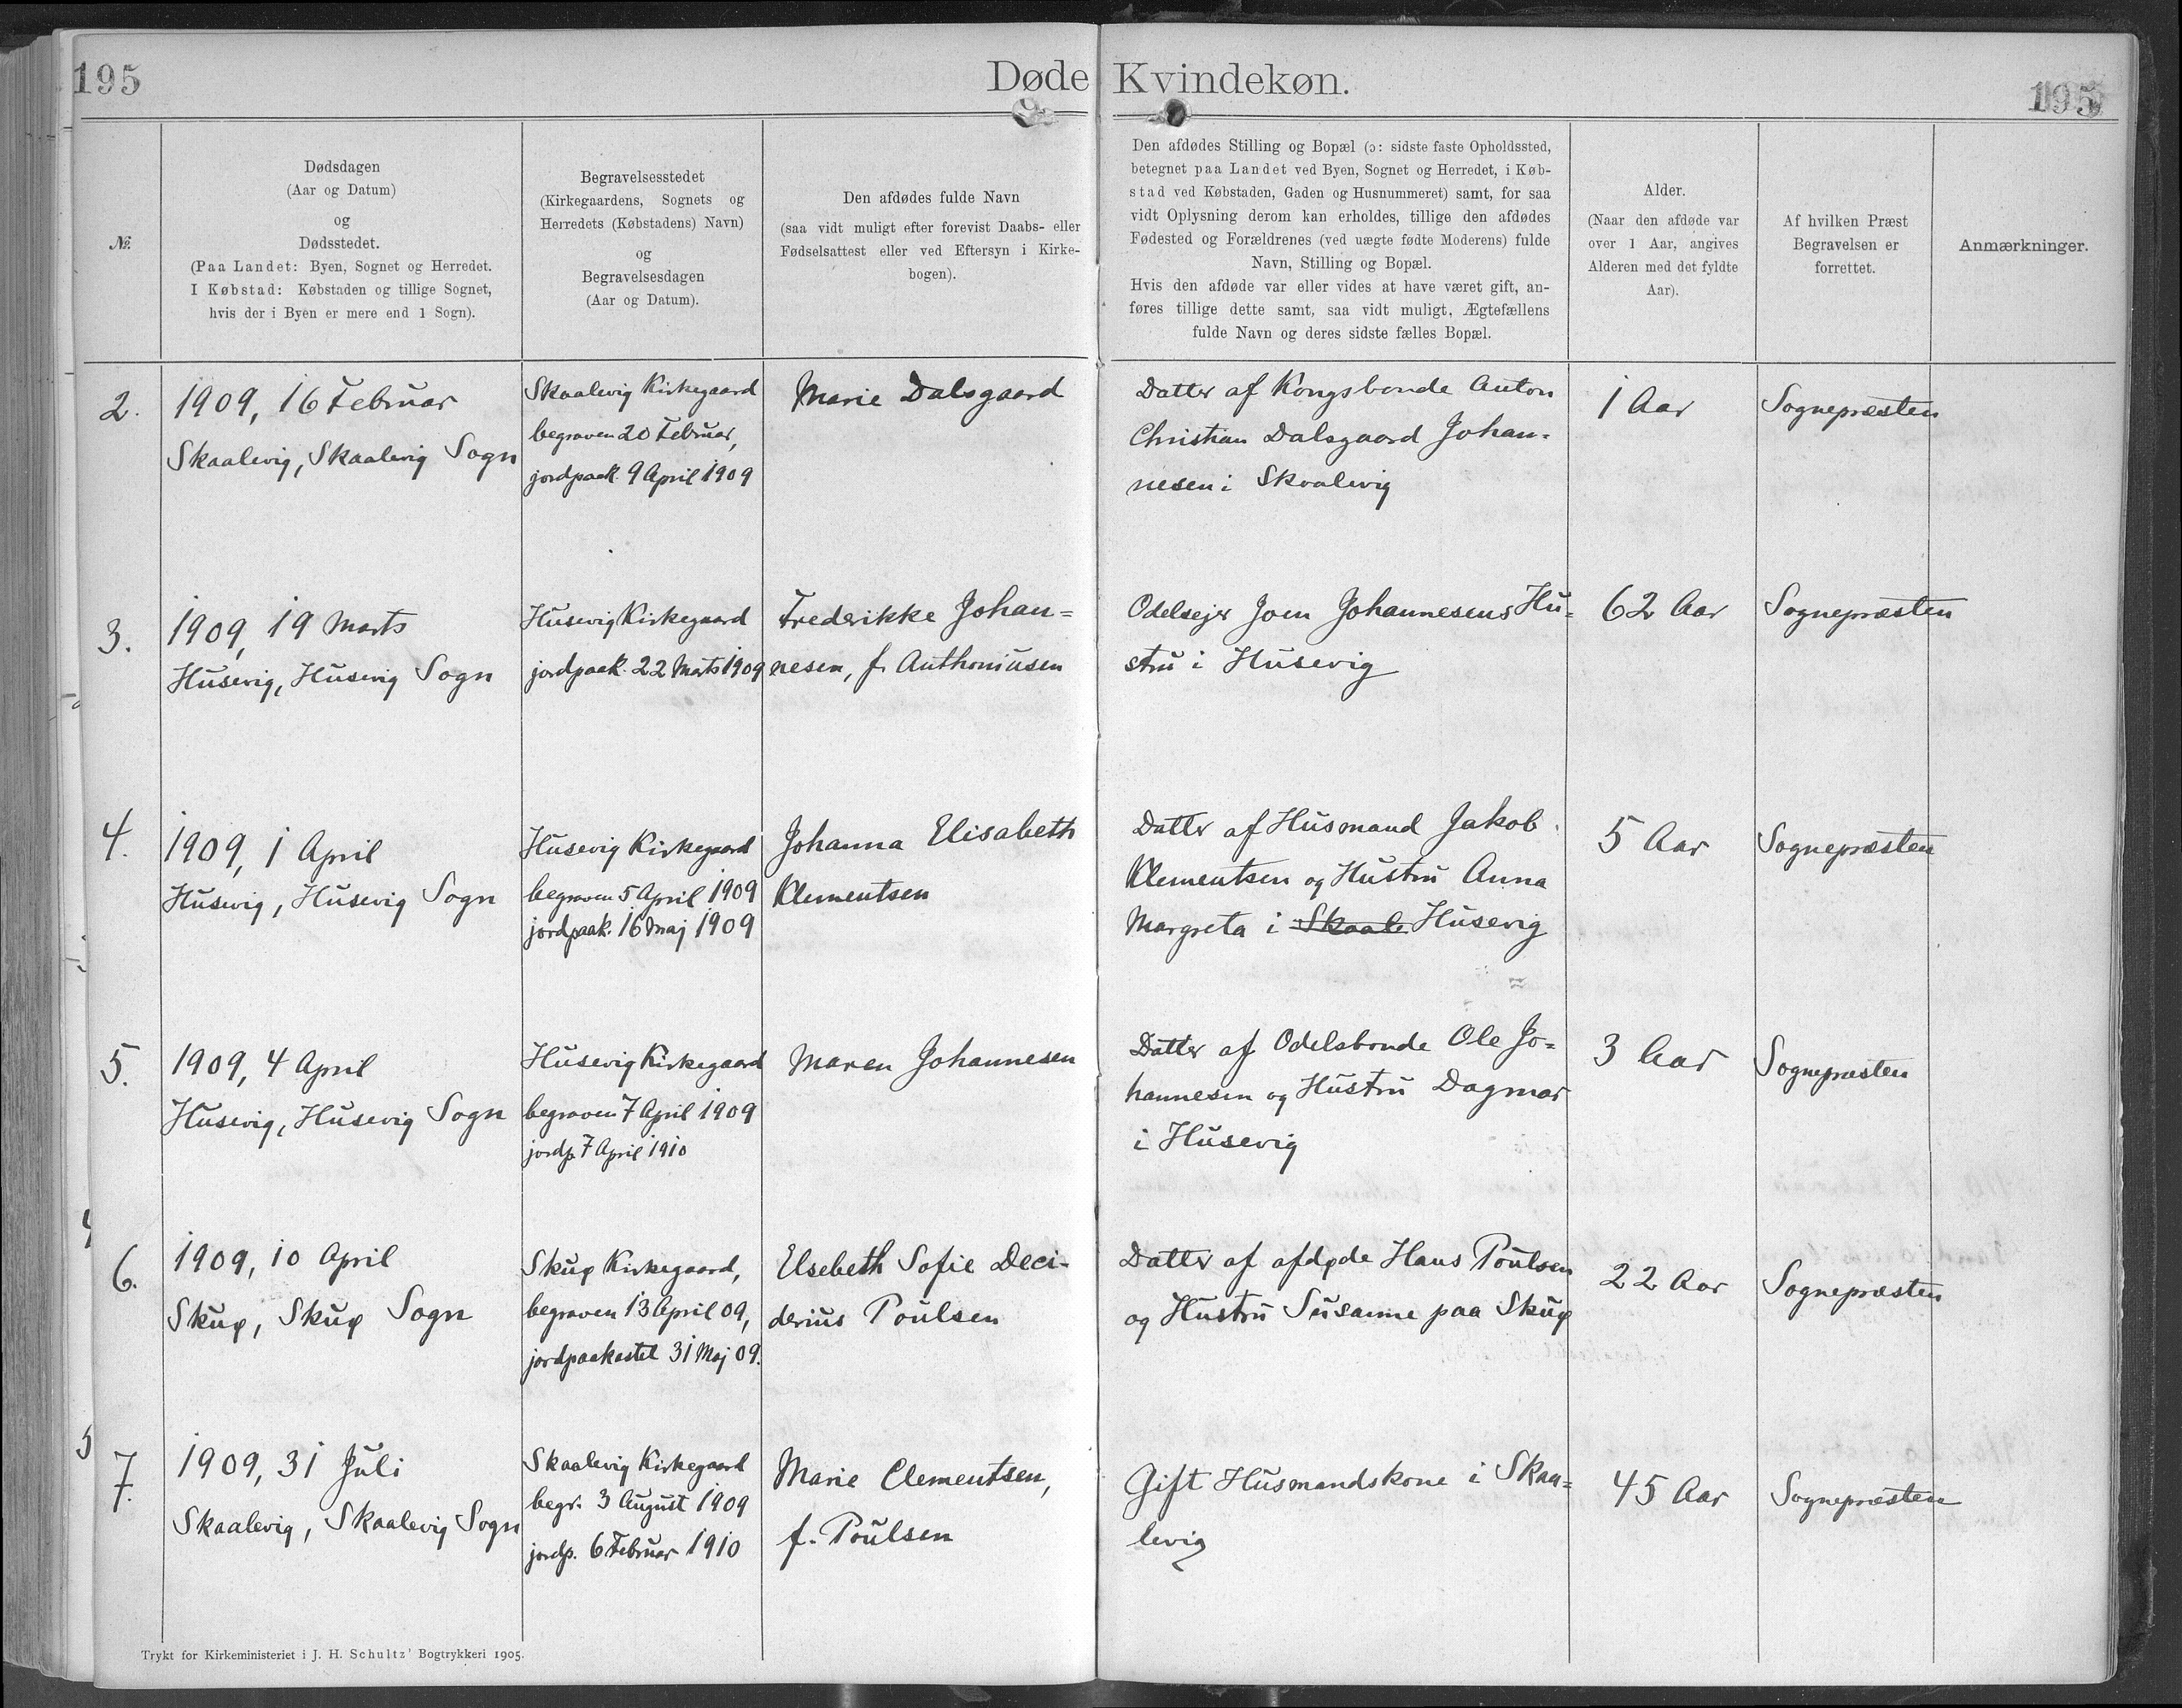 195
Døde Kvindekøn.
195
№.
Dødsdagen
(Aar og Datum)
og
Dødsstedet.
(Paa Landet: Byen, Sognet og Herredet.
I Købstad: Købstaden og tillige Sognet,
hvis der i Byen er mere end 1 Sogn).
Begravelsesstedet
(Kirkegaardens, Sognets og
Herredets (Købstadens) Navn)
og
Begravelsesdagen
(Aar og Datum).
Den afdødes fulde Navn
(saa vidt muligt efter forevist Daabs- eller
Fødselsattest eller ved Eftersyn i Kirke-
bogen).
Den afdødes Stilling og Bopæl (ɔ: sidste faste Opholdssted,
betegnet paa Landet ved Byen, Sognet og Herredet, i Køb-
stad ved Købstaden, Gaden og Husnummeret) samt, for saa
vidt Oplysning derom kan erholdes, tillige den afdødes
Fødested og Forældrenes (ved uægte fødte Moderens) fulde
Navn, Stilling og Bopæl.
Hvis den afdøde var eller vides at have været gift, an-
føres tillige dette samt, saa vidt muligt, Ægtefællens
fulde Navn og deres sidste fælles Bopæl.
Alder.
(Naar den afdøde var
over 1 Aar, angives
Alderen med det fyldte
Aar).
Af hvilken Præst
Begravelsen er
forrettet.
Anmærkninger.
2.
1909, 16 Februar
Skaalevig, Skaalevig Sogn
Skaalevig Kirkegaard
begraven 20 Februar,
jordpaak. 9 April 1909
Marie Dalsgaard
Datter af Kongsbonde Anton
Christian Dalsgaard Johan-
nesen i Skaalevig
1 Aar
Sognepræsten
3.
1909, 19 Marts
Husevig, Husevig Sogn
Husevig Kirkegaard
jordpaak. 22 Marts 1909
Frederikke Johan=
nesen, f. Anthoniusen
Odelsejer Joen Johannesens Hu-
stru i Husevig
62 Aar
Sognepræsten
4.
1909, 1 April
Husevig, Husevig Sogn
Husevig Kirkegaard
begraven 5 April 1909
jordpaak. 16 Maj 1909
Johanna Elisabeth
Klementsen
Datter af Husmand Jakob
Klementsen og Hustru Anna
Margreta i Skaale Husevig
5 Aar
Sognepræsten
5.
1909, 4 April
Husevig, Husevig Sogn
Husevig Kirkegaard
begraven 7 April 1909
jordp. 7 April 1910
Maren Johannesen
Datter af Odelsbonde Ole Jo=
hannesen og Hustru Dagmar
i Husevig
3 Aar
Sognepræsten
6.
1909, 10 April
Skuø, Skuø Sogn
Skuø Kirkegaard,
begraven 13 April 09,
jordpaakastet 31 Maj 09.
Elsebeth Sofie Deci-
derius Poulsen
Datter af afdøde Hans Poulsen
og Hustru Susanne paa Skuø
22 Aar
Sognepræsten
7.
1909, 31 Juli
Skaalevig, Skaalevig Sogn
Skaalevig Kirkegaard
begr. 3 August 1909
jordp. 6 Februar 1910
Marie Clementsen,
f. Poulsen
Gift Husmandskone i Skaa=
levig
45 Aar
Sognepræsten
Trykt for Kirkeministeriet i J. H. Schultz' Bogtrykkeri 1905.